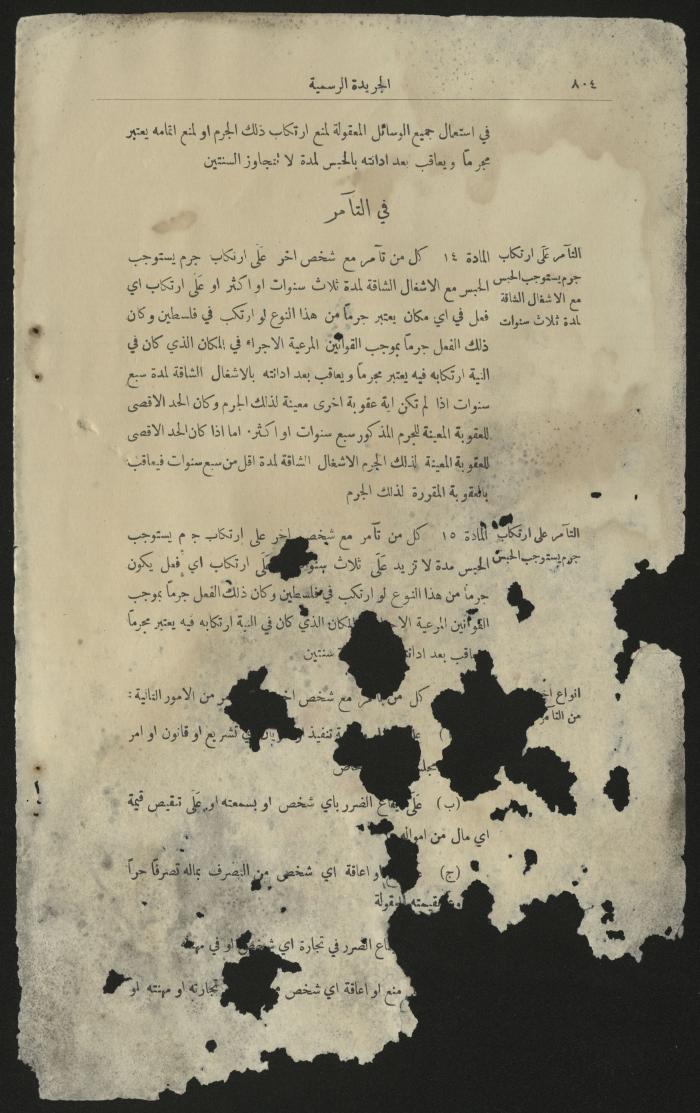 ٨٠٤
الجريدة الرسمية
في استعمال جميع الوسائل المعقولة لمنع ارتكاب ذلك الجرم او لمنع اتمامه يعتبر
مجرماً ويعاقب بعد ادانته بالحبس لمدة لا تتجاوز السنتين
في التآمر
التآمر على ارتكاب
جرم يستوجب الحبس
مع الاشغال الشاقة
لمدة ثلاث سنوات
المادة ١٤ كل من تآمر مع شخص اخر على ارتكاب جرم يستوجب
الحبس مع الاشغال الشاقة لمدة ثلاث سنوات او اكثر او على ارتكاب اي
فعل في اي مكان يعتبر جرماً من هذا النوع لو ارتكب في فلسطين وكان
ذلك الفعل جرماً بموجب القوانين المرعية الاجراء في المكان الذي كان في
النية ارتكابه فيه يعتبر مجرماً ويعاقب بعد ادانته بالاشغال الشاقة لمدة سبع
سنوات اذا لم تكن اية عقوبة اخرى معينة لذلك الجرم وكان الحد الاقصى
للعقوبة المعينة للجرم المذكور سبع سنوات او اكثر. اما اذا كان الحد الاقصى
للعقوبة المعينة لذلك الجرم الاشغال الشاقة لمدة اقل من سبع سنوات فيعاقب
بالعقوبة المقررة لذلك الجرم
التآمر على ارتكاب
جرم يستوجب الحبس
المادة ١٥ كل من تآمر مع شخص اخر على ارتكاب ج م يستوجب
الحبس مدة لا تزيد على ثلاث على ارتكاب اي فعل يكون
جرماً من هذا النوع لو ارتكب في فلسطين وكان ذلك الفعل جرماً بموجب
القوانين المرعية المكان الذي كان في النية ارتكابه فيه يعتبر مجرماً
بعد سنتين
انواع
من
كل مع شخص من الامور التالية:
تنفيذ تشريع او قانون او امر
(ب) الضرر باي شخص او بسمعته او على تنقيص قيمة
اي مال من امواله
(ج) او اعاقة اي شخص من التصرف بماله تصرفاً حراً
الضرر في تجارة اي شخص او في مهنته
منع او اعاقة اي شخص تجارته او مهنته او